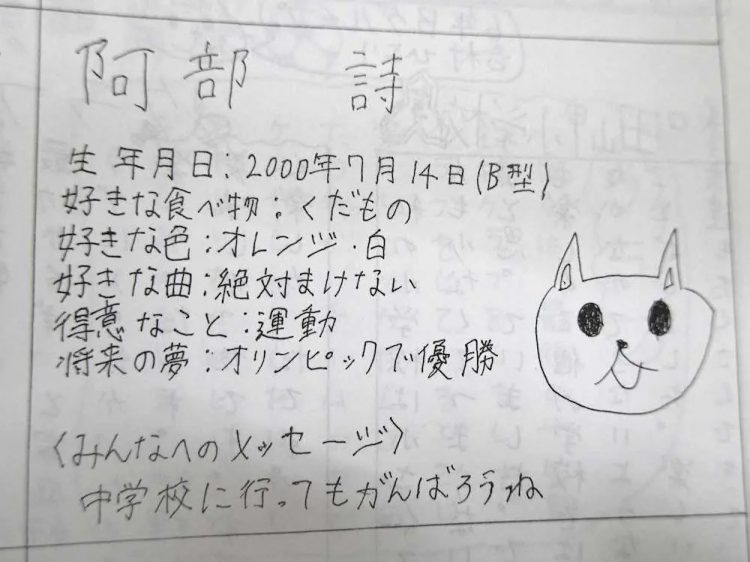 阿部 詩
生年月日:2000年7月14日(B型)
好きな食べ物:くだもの
好きな色:オレンジ・白
好きな曲:絶対まけない
得意なこと:運動
将来の夢:オリンピックで優勝
〈みんなへのメッセージ〉
中学校に行ってもがんばろうね